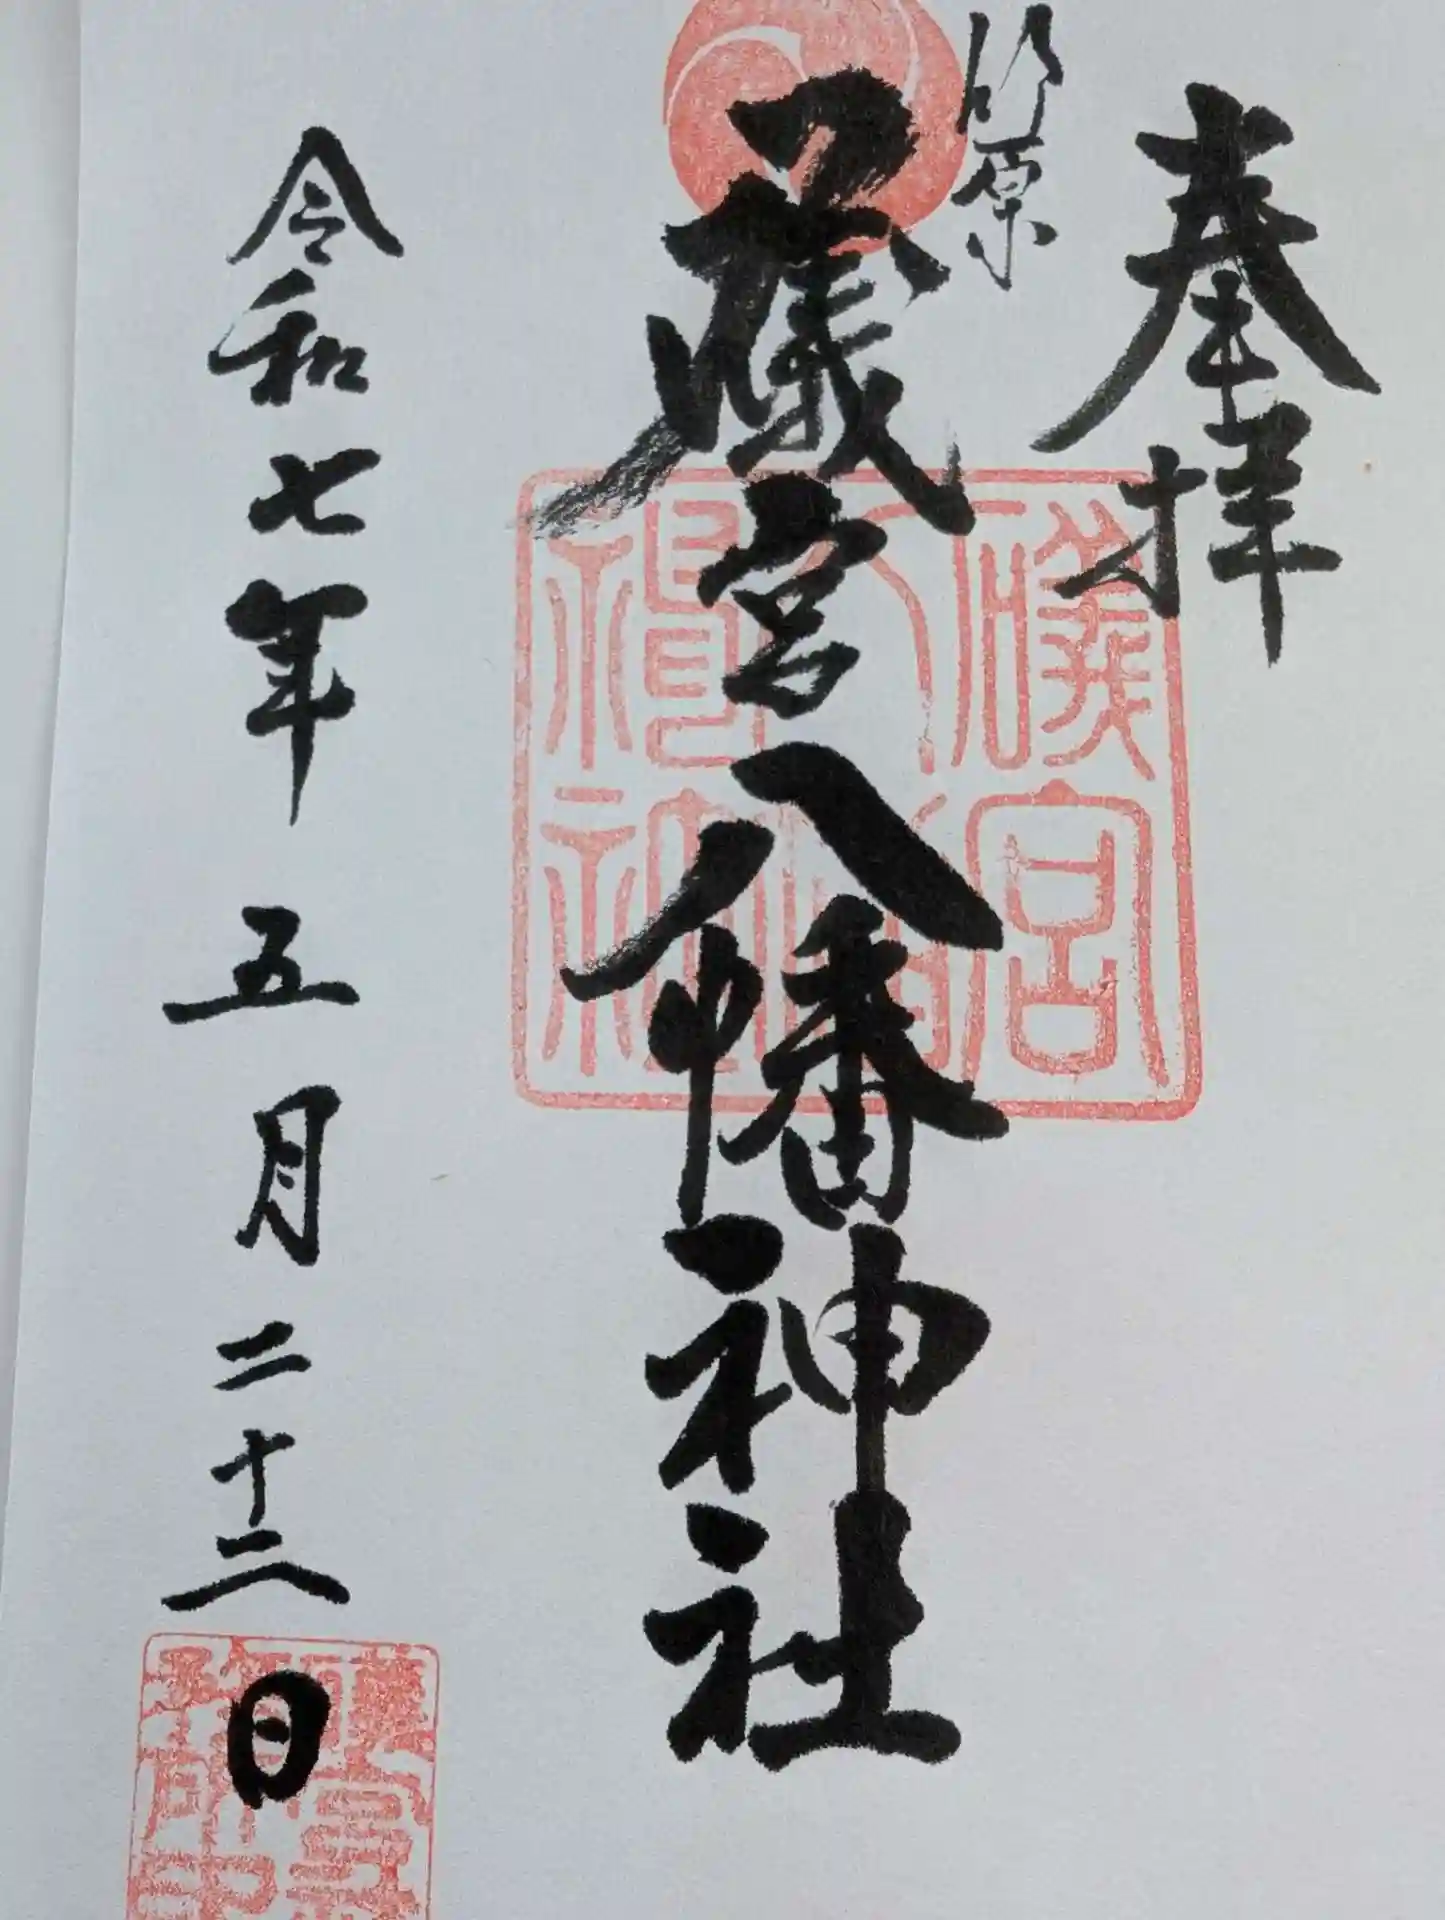 奉拝
竹原
礒宮八幡神社
礒宮
八幡
神社
令和七年五月二十三日